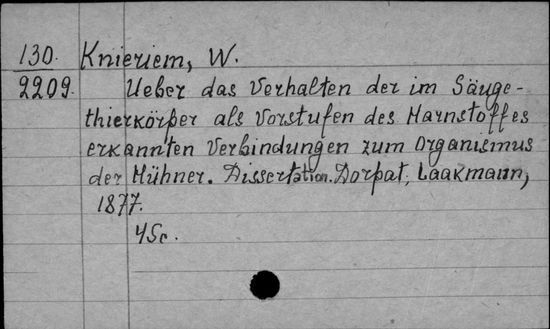 130. Knieriem, W.
2209. Ueber das Verhalten der im Säuge-
thierkörper als Vorstufen des Harnstoffes
erkannten Verbindungen zum Organismus
der Hühner. Dissertation. Dorpat, Laakmann,
1877.
4Sc.